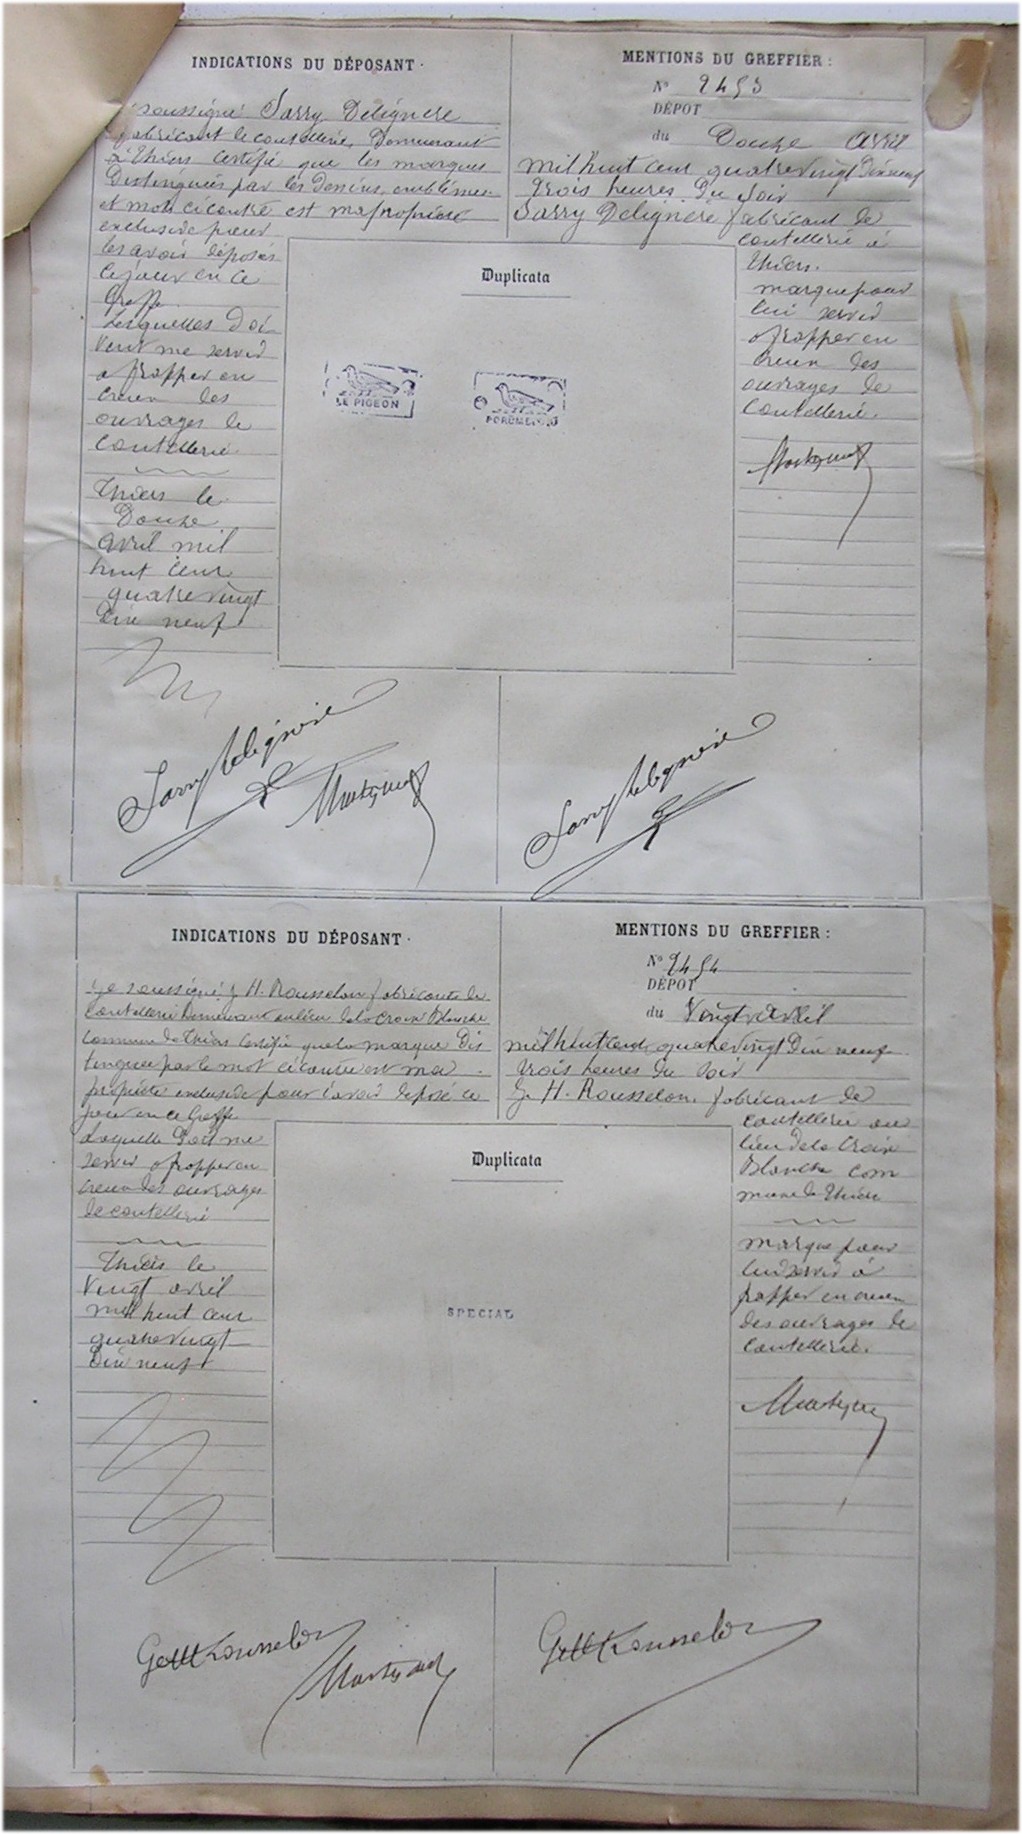 INDICATIONS DU DÉPOSANT
soussigné Sarry Delignère
fabricant de coutellerie, Demeurant
à Thiers certifie que les marques
Distinguées par les Dessins, emblêmes
et mots ci contre est ma propriété
exclusive pour
les avoir déposés
ce jour en ce
Greffe.
Lesquelles doi
vent me servir
a frapper en
creux des
ouvrages de
coutellerie
Thiers le
Douze
avril mil
huit cent
quatre vingt
Dix neuf
Sarry Delignère
MENTIONS DU GREFFIER :
N° 2453
DÉPOT
du Douze avril
mil huit cent quatre vingt Dix neuf
trois heures Du Soir
Sarry Delignère fabricant de
coutellerie à
Thiers.
marque pour
lui servir
a frapper en
creux des
ouvrages de
coutellerie.
Duplicata
LE PIGEON
Sarry Delignère
INDICATIONS DU DÉPOSANT
Je soussigné G. H. Rousselon fabricant de
coutellerie Demeurant au lieu de la Croix Blanche
commune de Thiers certifie que la marque Dis
tinguée par le mot ci contre est ma
propriété exclusive pour l'avoir déposé ce
jour en ce Greffe
Laquelle Doit me
servir a frapper en
creux des ouvrages
de coutellerie
Thiers le
vingt avril
mil huit cent
quatre vingt
Dix neuf
MENTIONS DU GREFFIER :
N° 2454
DÉPOT
du Vingt avril
mil huit cent quatre vingt Dix neuf
trois heures du Soir
G. H. Rousselon, fabricant de
coutellerie au
lieu de la Croix
Blanche com
mune de Thiers
marque pour
lui servir à
frapper en creux
des ouvrages de
coutellerie.
Duplicata
SPECIAL